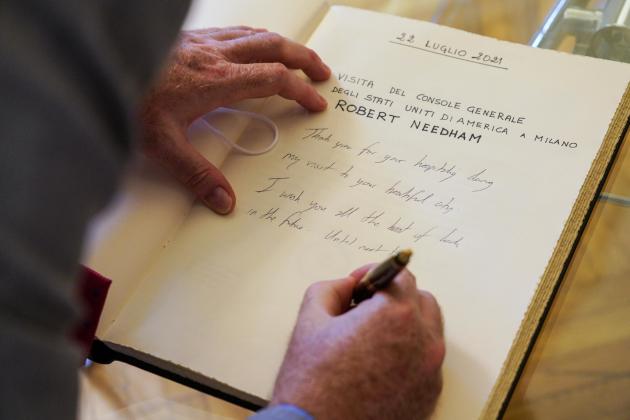 22 LUGLIO 2021
VISITA DEL CONSOLE GENERALE
DEGLI STATI UNITI DI AMERICA A MILANO
ROBERT NEEDHAM
Thank you for your hospitality during
my visit to your beautiful city.
I wish you all the best of luck
in the future. Until next